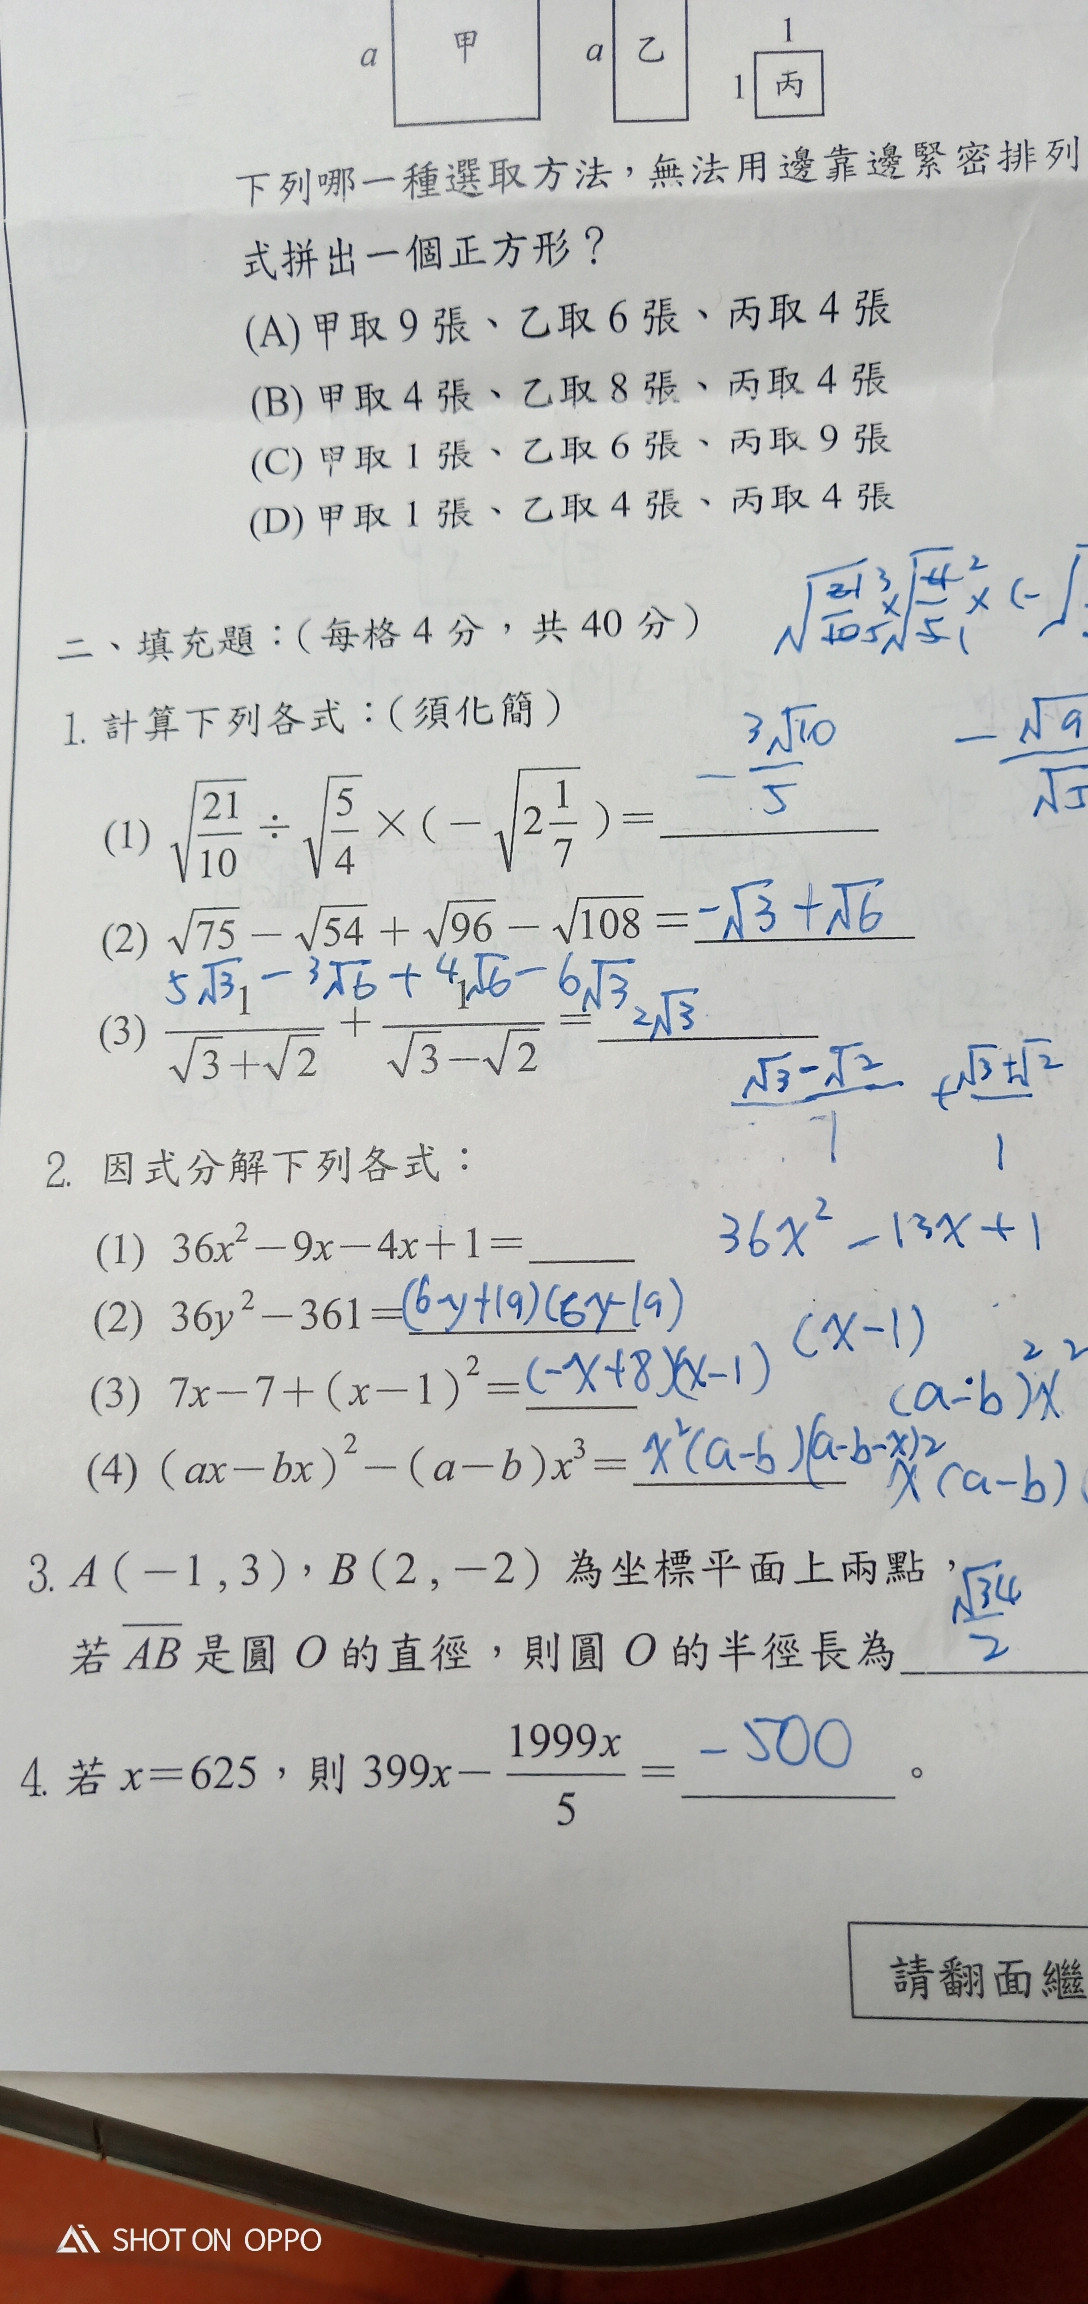 a 甲 a 乙 1 1 丙
下列哪一種選取方法，無法用邊靠邊緊密排列
式拼出一個正方形？
(A)甲取 9 張、乙取 6 張、丙取 4 張
(B)甲取 4 張、乙取 8 張、丙取 4 張
(C)甲取 1 張、乙取 6 張、丙取 9 張
(D)甲取 1 張、乙取 4 張、丙取 4 張
二、填充題：(每格 4 分，共 40 分)
1. 計算下列各式：(須化簡)
(1) √(21/10) ÷ √(5/4) × (－√(2 1/7)) ＝ －3√10/5
(2) √75 － √54 ＋ √96 － √108 ＝ -√3+√6
5√3 - 3√6 + 4√6 - 6√3
(3) 1/(√3＋√2) ＋ 1/(√3－√2) ＝ 2√3
(√3-√2)/1 + (√3+√2)/1
2. 因式分解下列各式：
(1) 36x²－9x－4x＋1＝
36x²-13x+1
(2) 36y²－361＝(6y+19)(6y-19)
(x-1)
(3) 7x－7＋(x－1)²＝(-x+8)(x-1)
(a-b)²x²
(4) (ax－bx)²－(a－b)x³＝x²(a-b)(a-b-x)
x²(a-b)
3. A(－1,3)，B(2,－2) 為坐標平面上兩點，
若 AB 是圓 O 的直徑，則圓 O 的半徑長為 √34/2
4. 若 x＝625，則 399x－1999x/5 ＝ -500 。
請翻面繼
SHOT ON OPPO